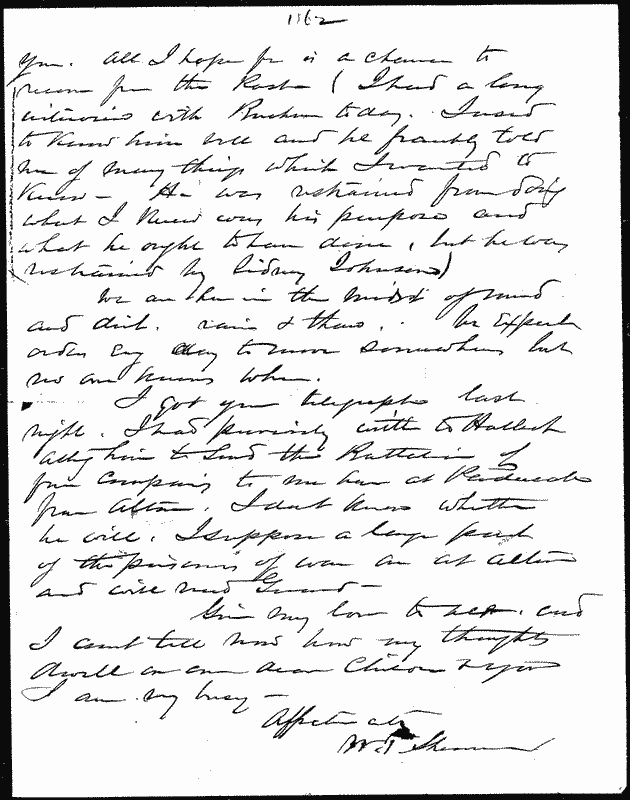 1862
you. All I hope for is a chance to
recover from the Past (I had a long
interview with Buckner today. I used
to know him well and he frankly told
me of many things which I wanted to
know - He was restrained from doing
what I knew was his purpose and
what he ought to have done, but he was
restrained by Sidney Johnson)
We are here in the midst of mud
and dirt. rain & thaw. We expect
orders any day to move somewhere but
no one knows when.
I got your telegraph last
night. I had previously written to Halleck
asking him to send the Battalion of
four companies to me here at Paducah
from Alton. I dont know whether
he will. I suppose a large part
of the prisoners of war are at Alton
and will need Guard -
Give my love to all. and
I cant tell you how my thoughts
dwell on our dear Children & you
I am very busy -
Affectionately
W. T. Sherman